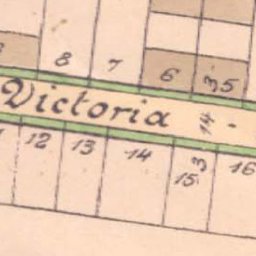 8 7 6 3 5
Victoria 14 -
12 13 14 15 3 16